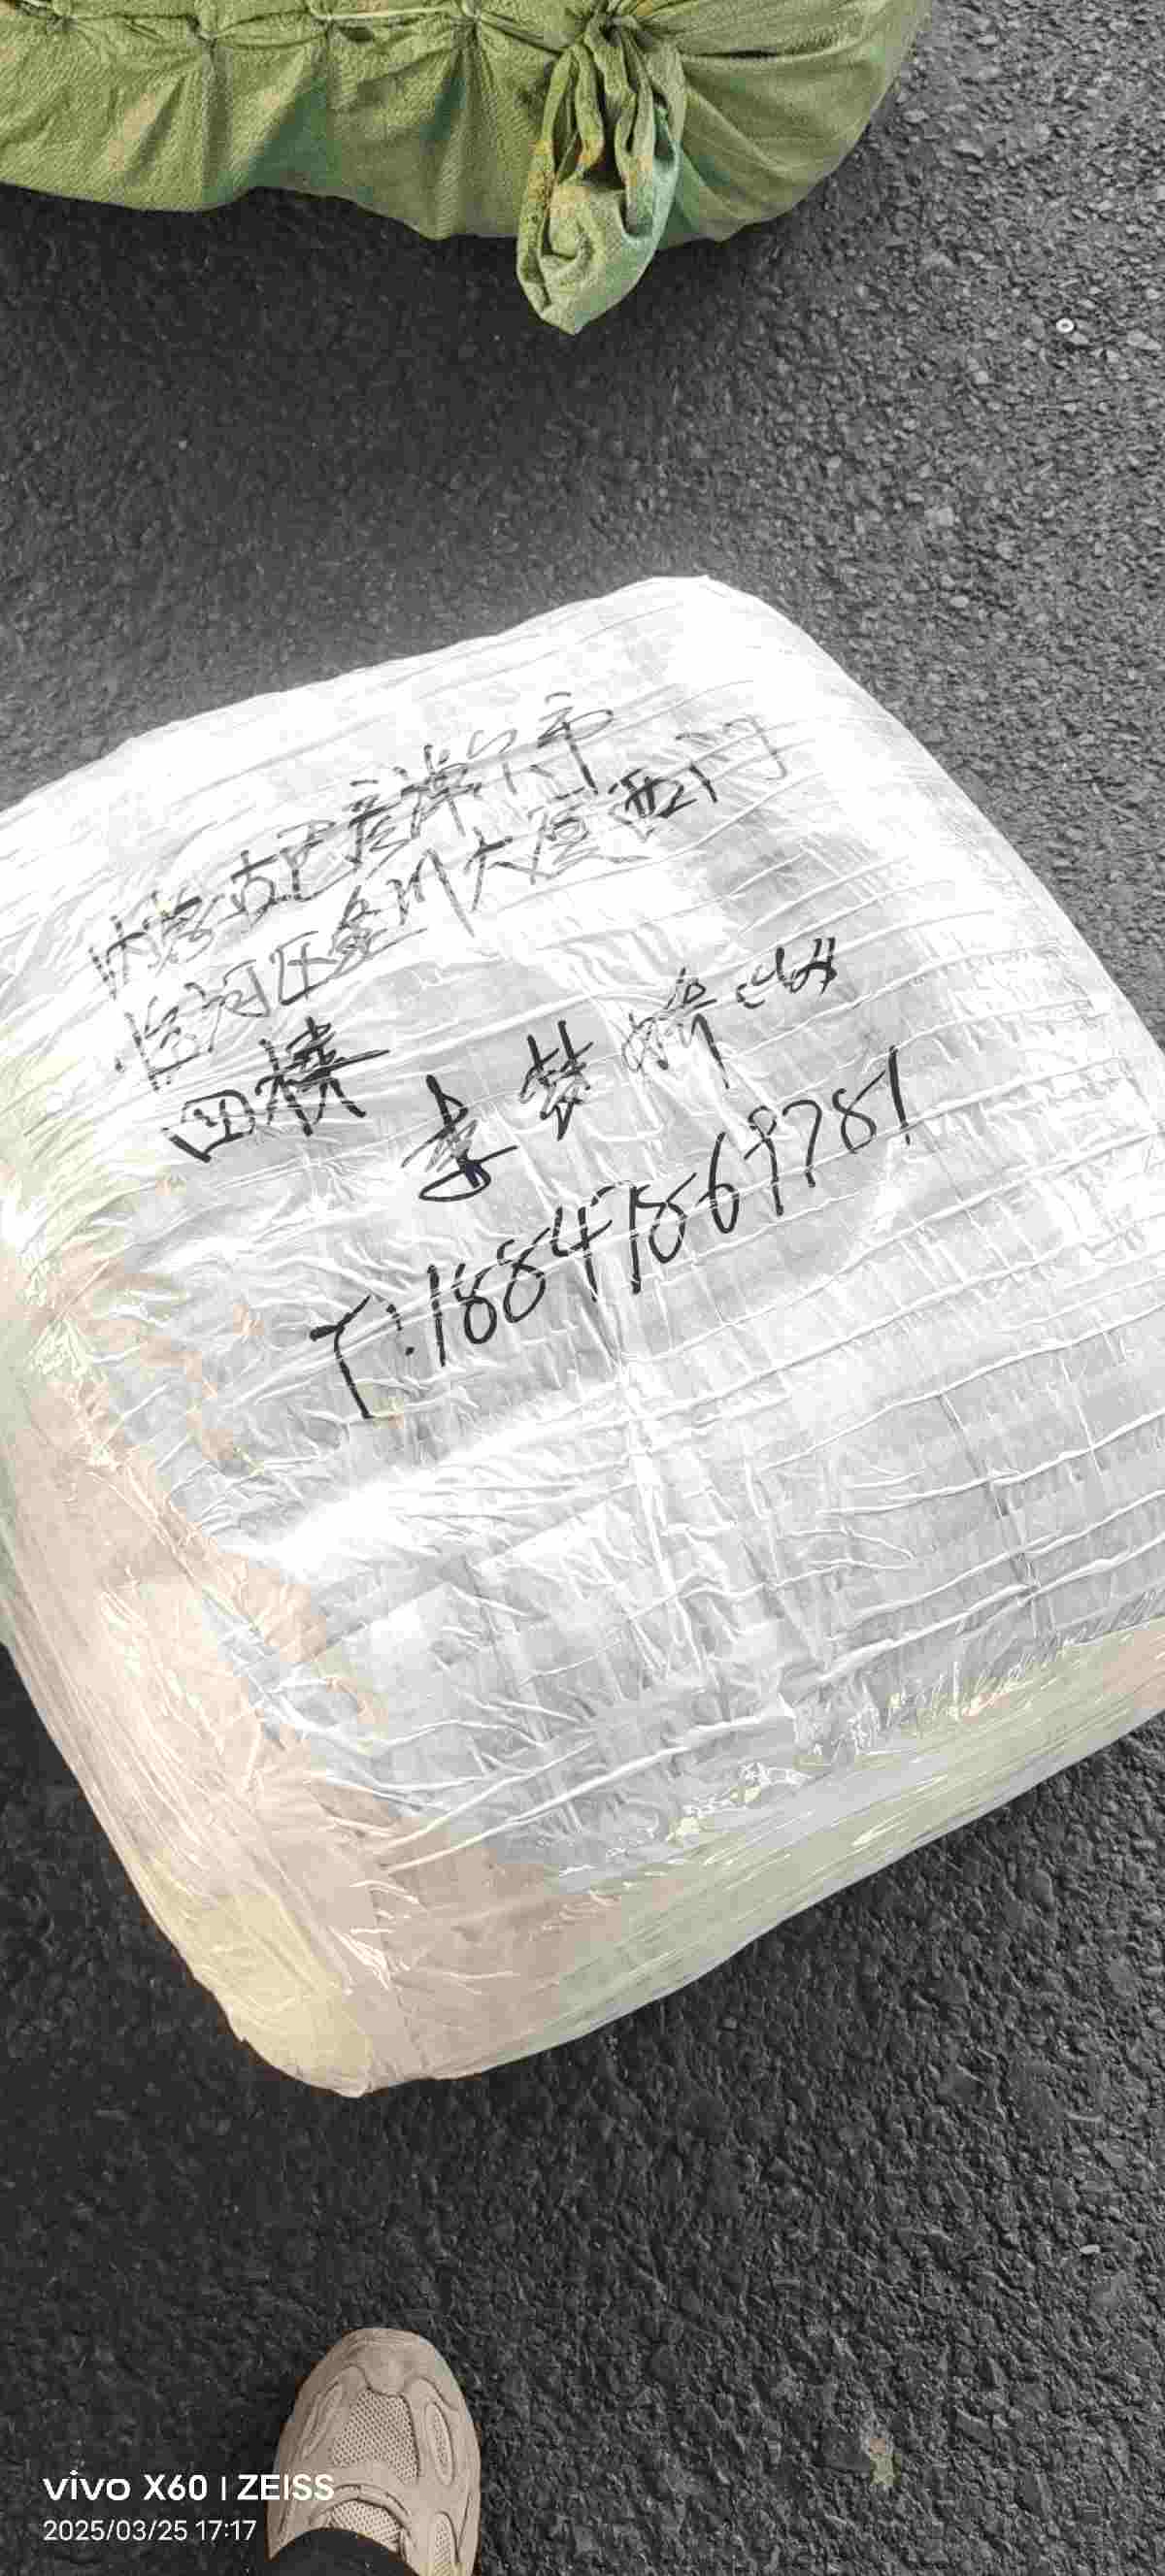 内蒙古巴彦淖尔市
临河区金川大道西门
四楼 李梦婷
T:18847869781
vivo X60 | ZEISS
2025/03/25 17:17